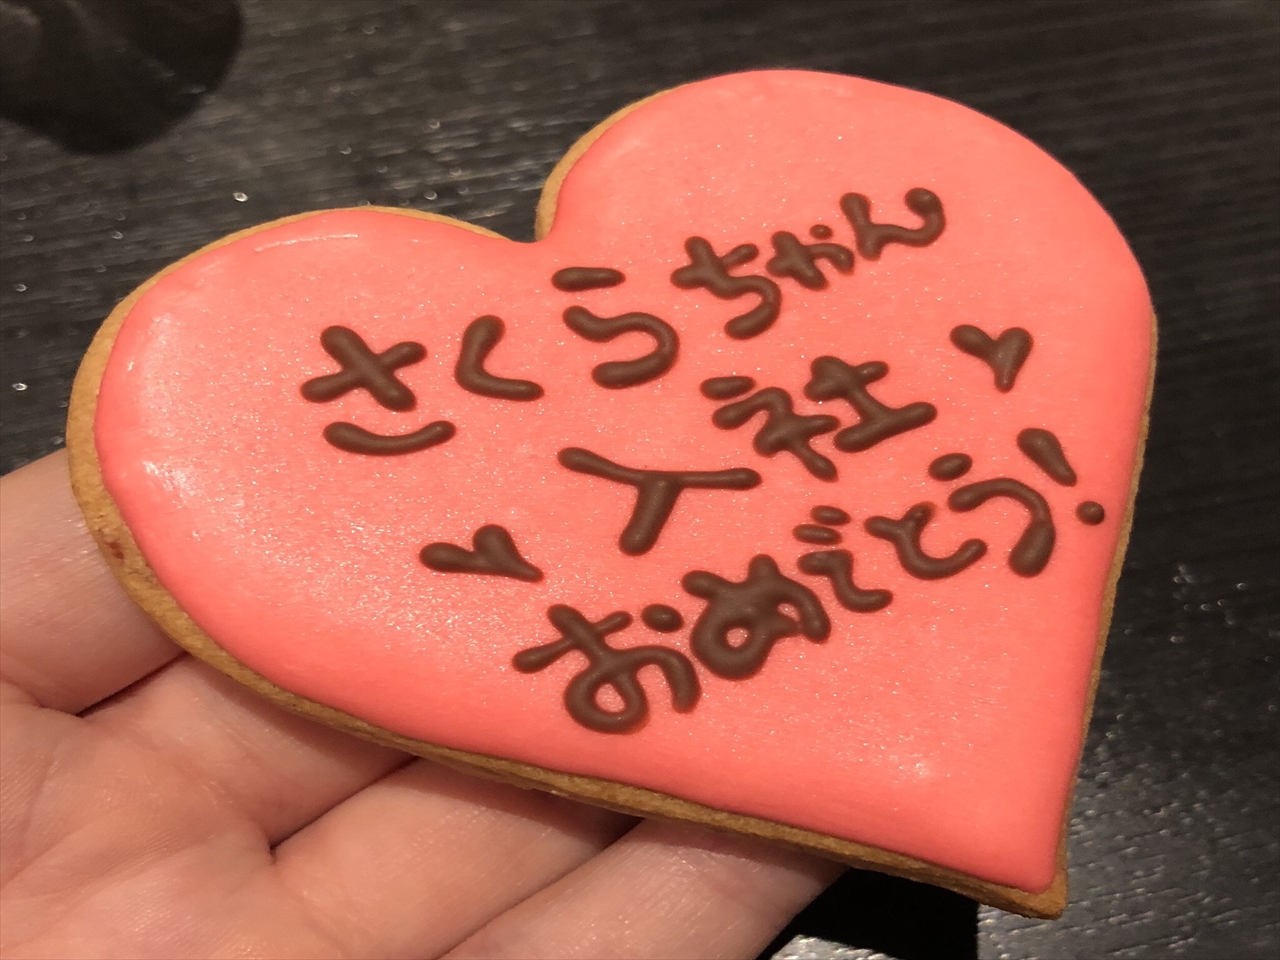 さくらちゃん
♥入社♥
おめでとう!